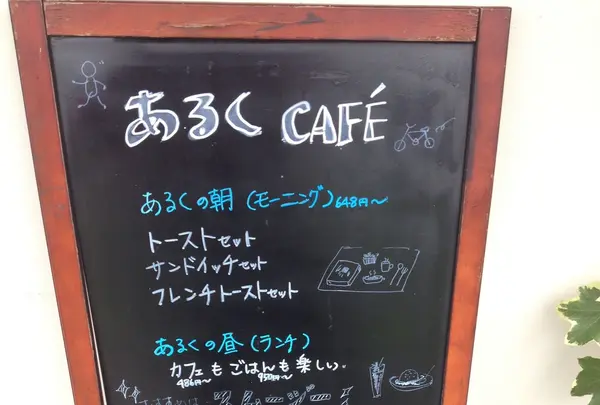 あるく CAFÉ
あるくの朝（モーニング）648円～
トーストセット
サンドイッチセット
フレンチトーストセット
あるくの昼（ランチ）
カフェもごはんも楽しい。
486円～ 950円～